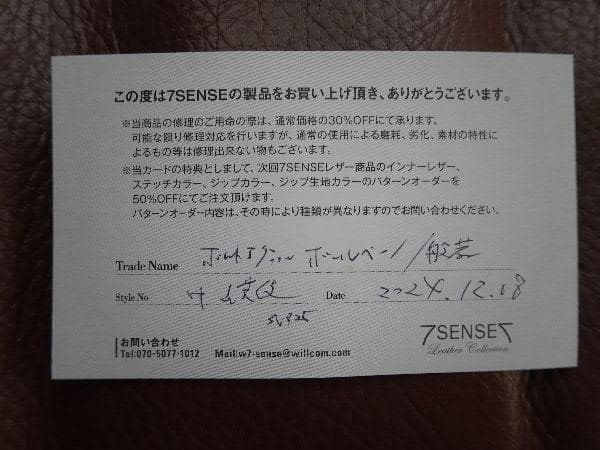 この度は7SENSEの製品をお買い上げ頂き、ありがとうございます。
※当商品の修理のご用命の際は、通常価格の30%OFFにて承ります。
可能な限り修理対応を行いますが、通常の使用による磨耗、劣化、素材の特性に
よるもの等は修理出来ない物もございます。
※当カードの特典としまして、次回7SENSEレザー商品のインナーレザー、
ステッチカラー、ジップカラー、ジップ生地カラーのパターンオーダーを
50%OFFにてご注文頂けます。
パターンオーダー内容は、その時により種類が異なりますのでお問い合わせください。
Trade Name ボールペン/般若
Style No Date 2024.12.08
SV925
7SENSE7
Leather Collection
お問い合わせ
Tel:070-5077-1012 Mail:w7-sense@willcom.com